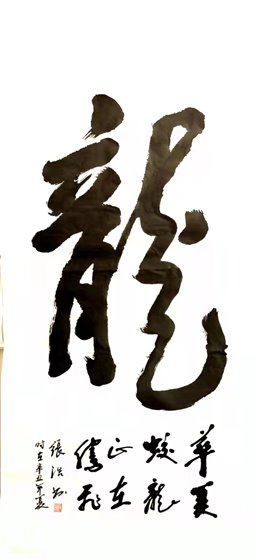 龍
華夏
蛟龍
正在
騰飛
張
时在辛丑年夏